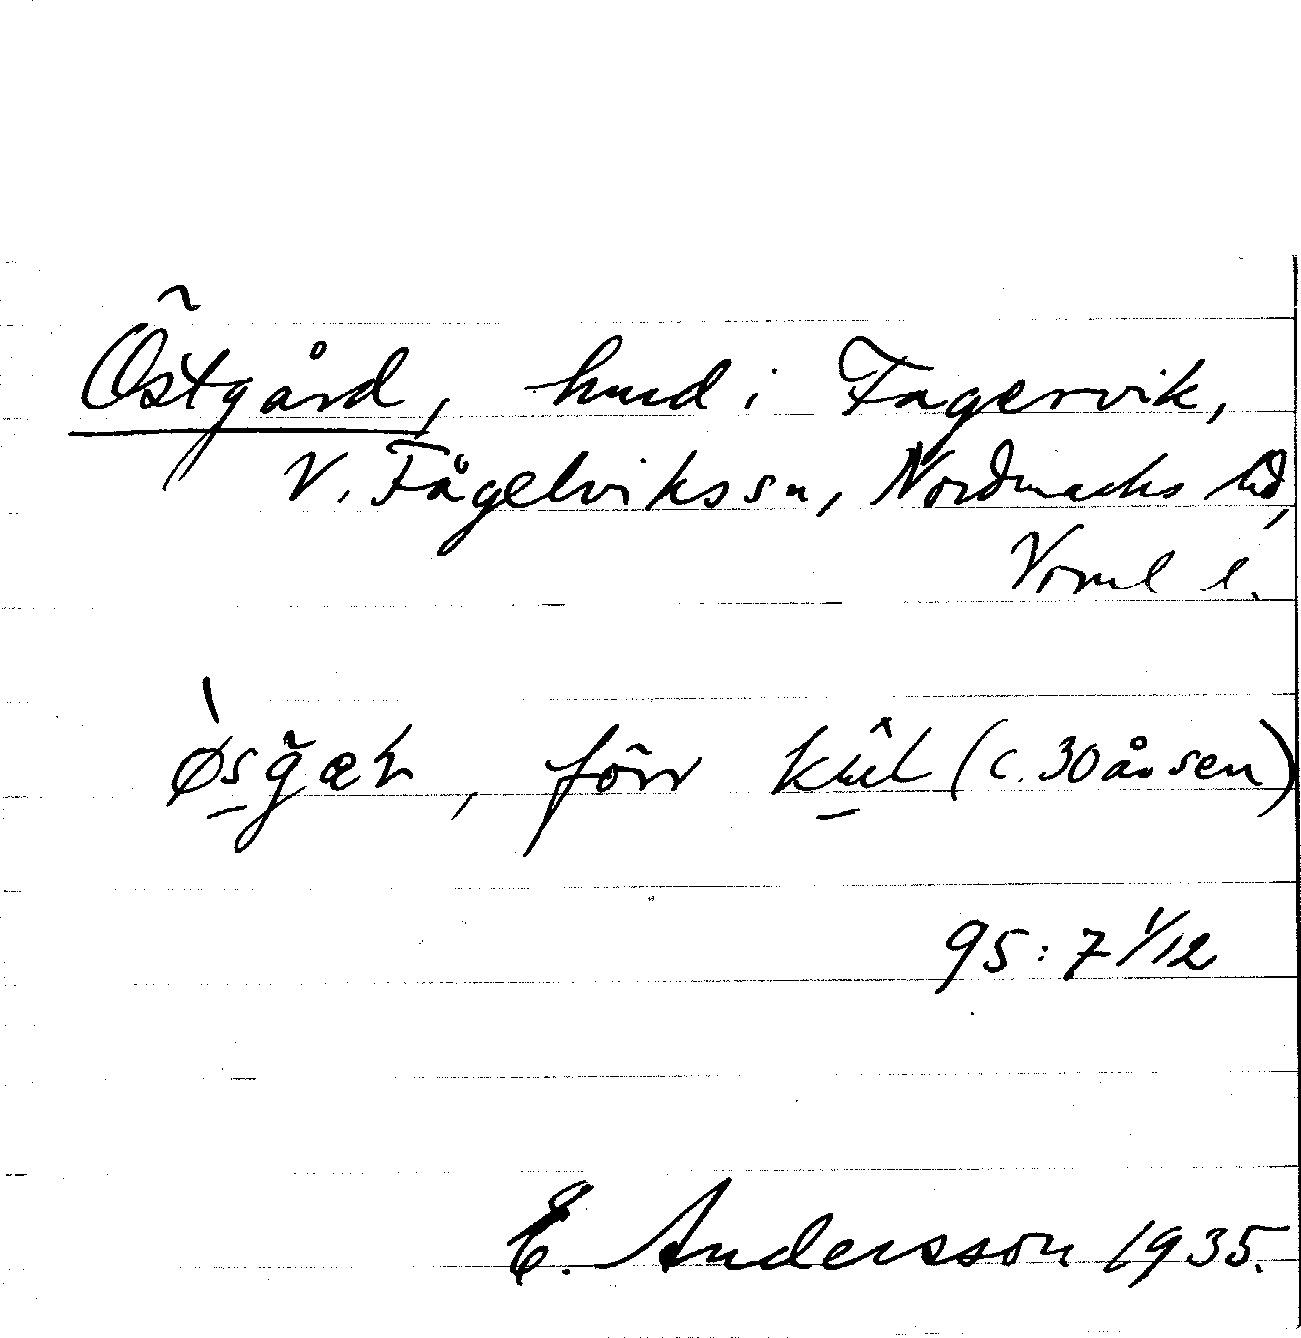 Östgård, hmd i Fagervik,
V. Fågelvikssn, Nordmarks hd,
Vrml l.
förr (c. 30 år sen)
95:7 1/12
E. Andersson 1935.